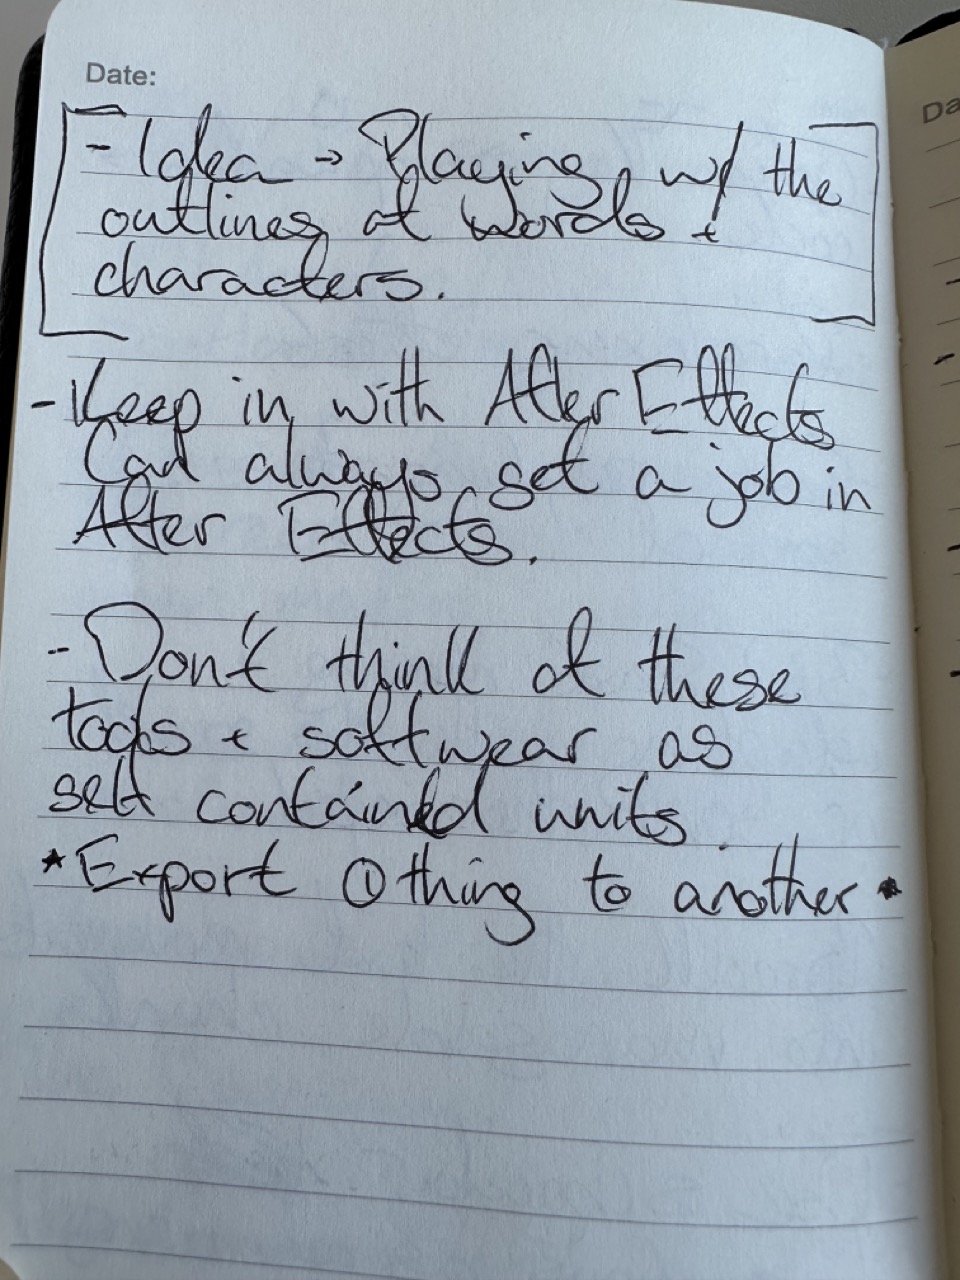 Date:
- Idea → Playing w/ the
outlines of words +
characters.
- Keep in with After Effects
Can always get a job in
After Effects.
- Don't think of these
tools + softwear as
self contained units.
* Export ① thing to another *
Da